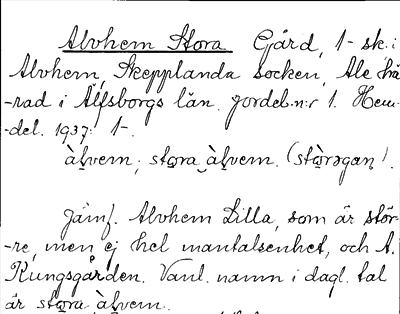 Alvhem Stora Gård, 1 - sk. i
Alvhem, Skepplanda socken, Ale hä
-rad i Älfsborgs län. jordeb.n:r 1. Hem-
-del. 1937: 1-.
àlvem; stora àlvem. (stòrəgan).
Jämf. Alvhem Lilla, som är stör-
-re, men ej hel mantalsenhet, och A.
Kungsgården. Vanl. namn i dagl. tal
är stora àlvem.